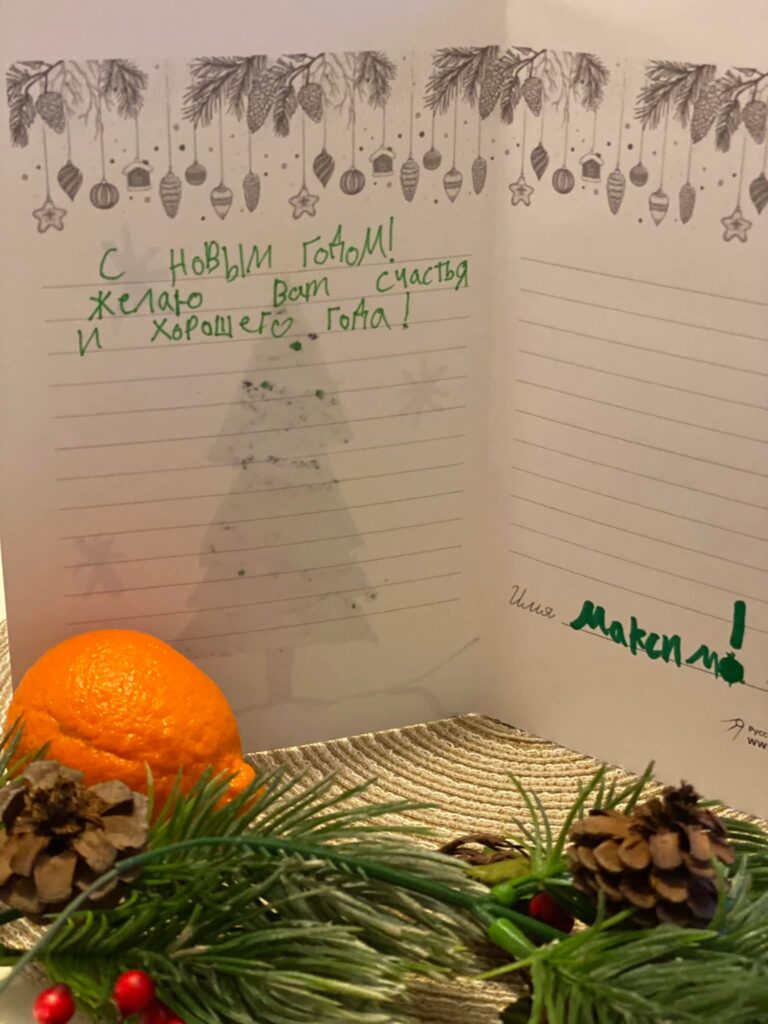 С новым годом!
желаю Вам счастья
и хорошего года!
Имя Максим!